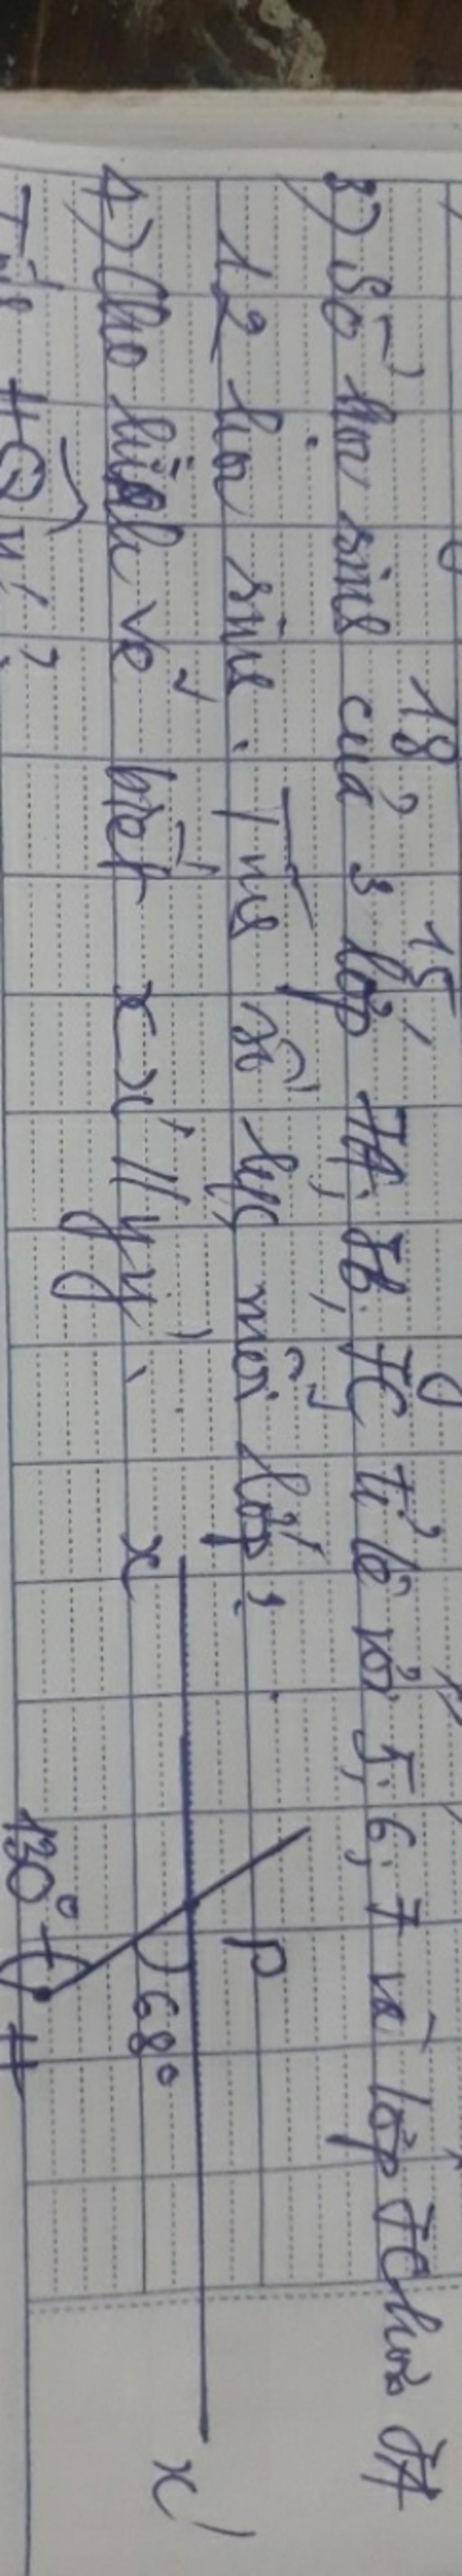 18 15
3) Số học sinh của 3 lớp 7A, 7B, 7C tỉ lệ với 5, 6, 7 và lớp 7C hơn 7A
12 học sinh. Tính số h/s mỗi lớp?
4) Cho hình vẽ biết xx' // yy'
x P 68° x'
130° H
Tính